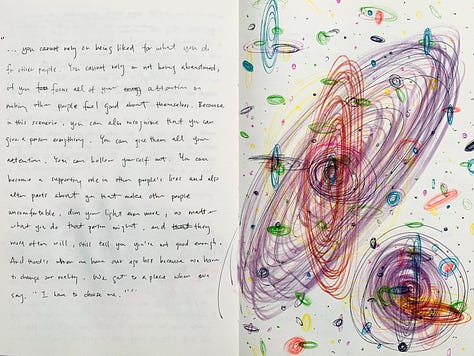 "... you cannot rely on being liked for what you do
for other people. You cannot rely on not being abandoned,
if you focus all of your energy attention on
making other people feel good about themselves. Because
in this scenario, you can also recognise that you can
give a person everything. You can give them all your
attention. You can hollow yourself out. You can
become a supporting role in other people's lives and also
alter parts about you that makes other people
uncomfortable, dim your light even more, no matter
what you do that person might, and they
more often will, still tell you you're not good enough.
And that's when we have our ego loss because we have
to change our reality. We get to a place where we
say, "I have to choose me."